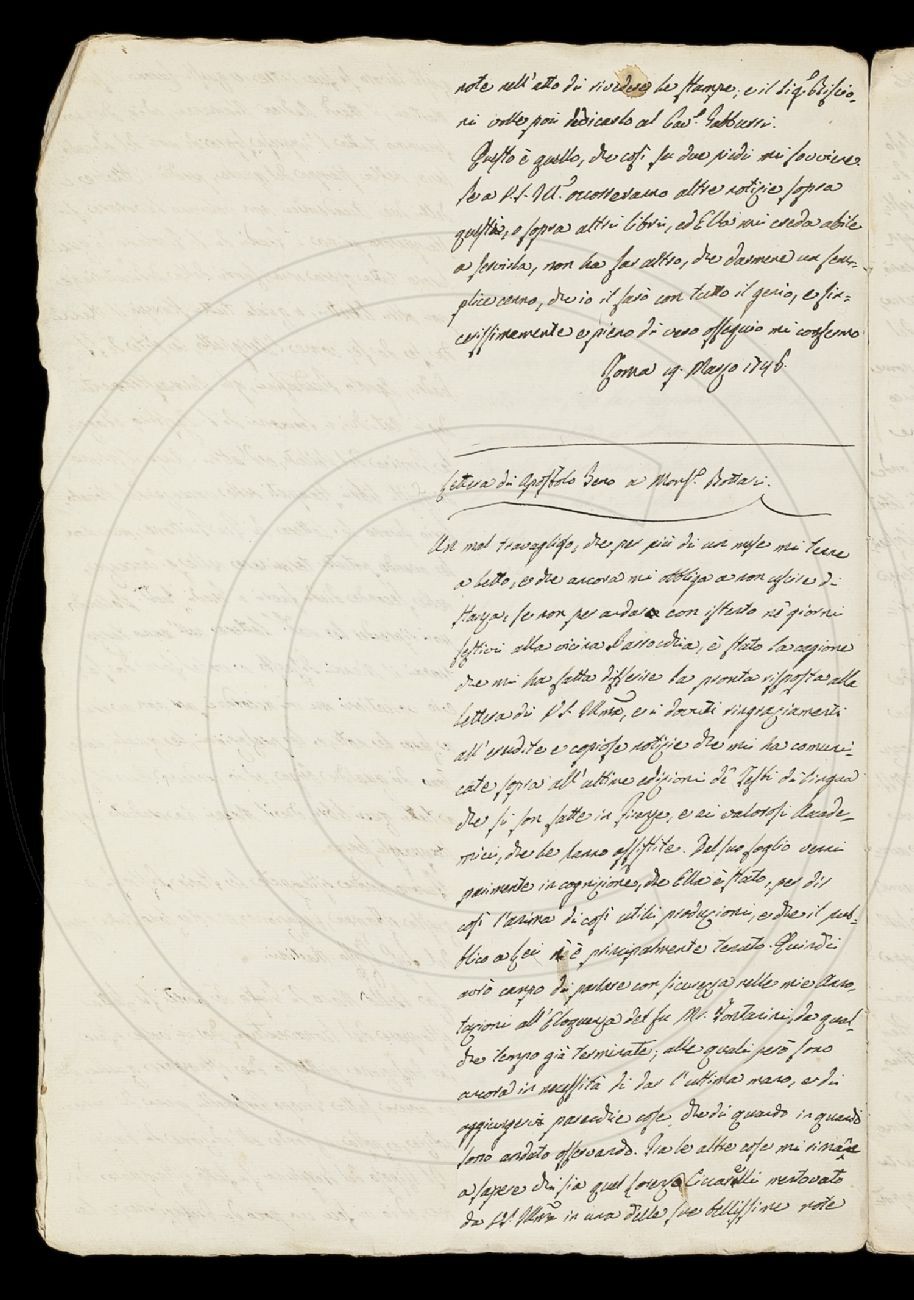 note nell'atto di rivedere le stampe, e il Sig.r Biscio-
ni volle poi dedicarlo al Cav.r Gabburri.
Questo è quello, che così su due piedi mi sovviene.
Se a V.S. Ill.a occorreranno altre notizie sopra
questi, o sopra altri libri, ed Ella mi creda abile
a servirla, non ha far altro, che darmene un sem-
plice cenno, che io il farò con tutto il genio, e sin-
cerissimamente e pieno di vero ossequio mi confermo
Roma 19. Marzo 1746.
Lettera di Apostolo Zeno a Mons.r Bottari.
Un mal travaglioso, che per più di un mese mi tenne
a letto, e che ancora mi obbliga a non uscire di
stanza, se non per andare con istento ne' giorni
festivi alla vicina Parrocchia, è stato la cagione
che mi ha fatta differire la pronta risposta alla
lettera di V.S. Illma, e i dovuti ringraziamenti
all'erudite e copiose notizie che mi ha comuni-
cate sopra all'ultime edizioni de' Testi di lingua
che si son fatte in Firenze, e ai valorosi Accade-
mici, che le hanno assistite. Dal suo foglio venni
parimente in cognizione, che Ella è stato, per dir
così l'anima di così utili produzioni, e che il pub-
blico a Lei n'è principalmente tenuto. Quindi
avrò campo di parlare con sicurezza nelle mie Anno-
tazioni all'Eloquenza del fu Mr. Fontanini, da qual-
che tempo già terminate, alle quali però sono
ancora in necessità di dar l'ultima mano, e di
aggiungervi parecchie cose, che di quando in quando
sono andato osservando. Tra le altre cose mi rimane
a sapere chi sia quel Lorenzo Ciccarelli mentovato
da V.S. Illma in una delle sue bellissime note